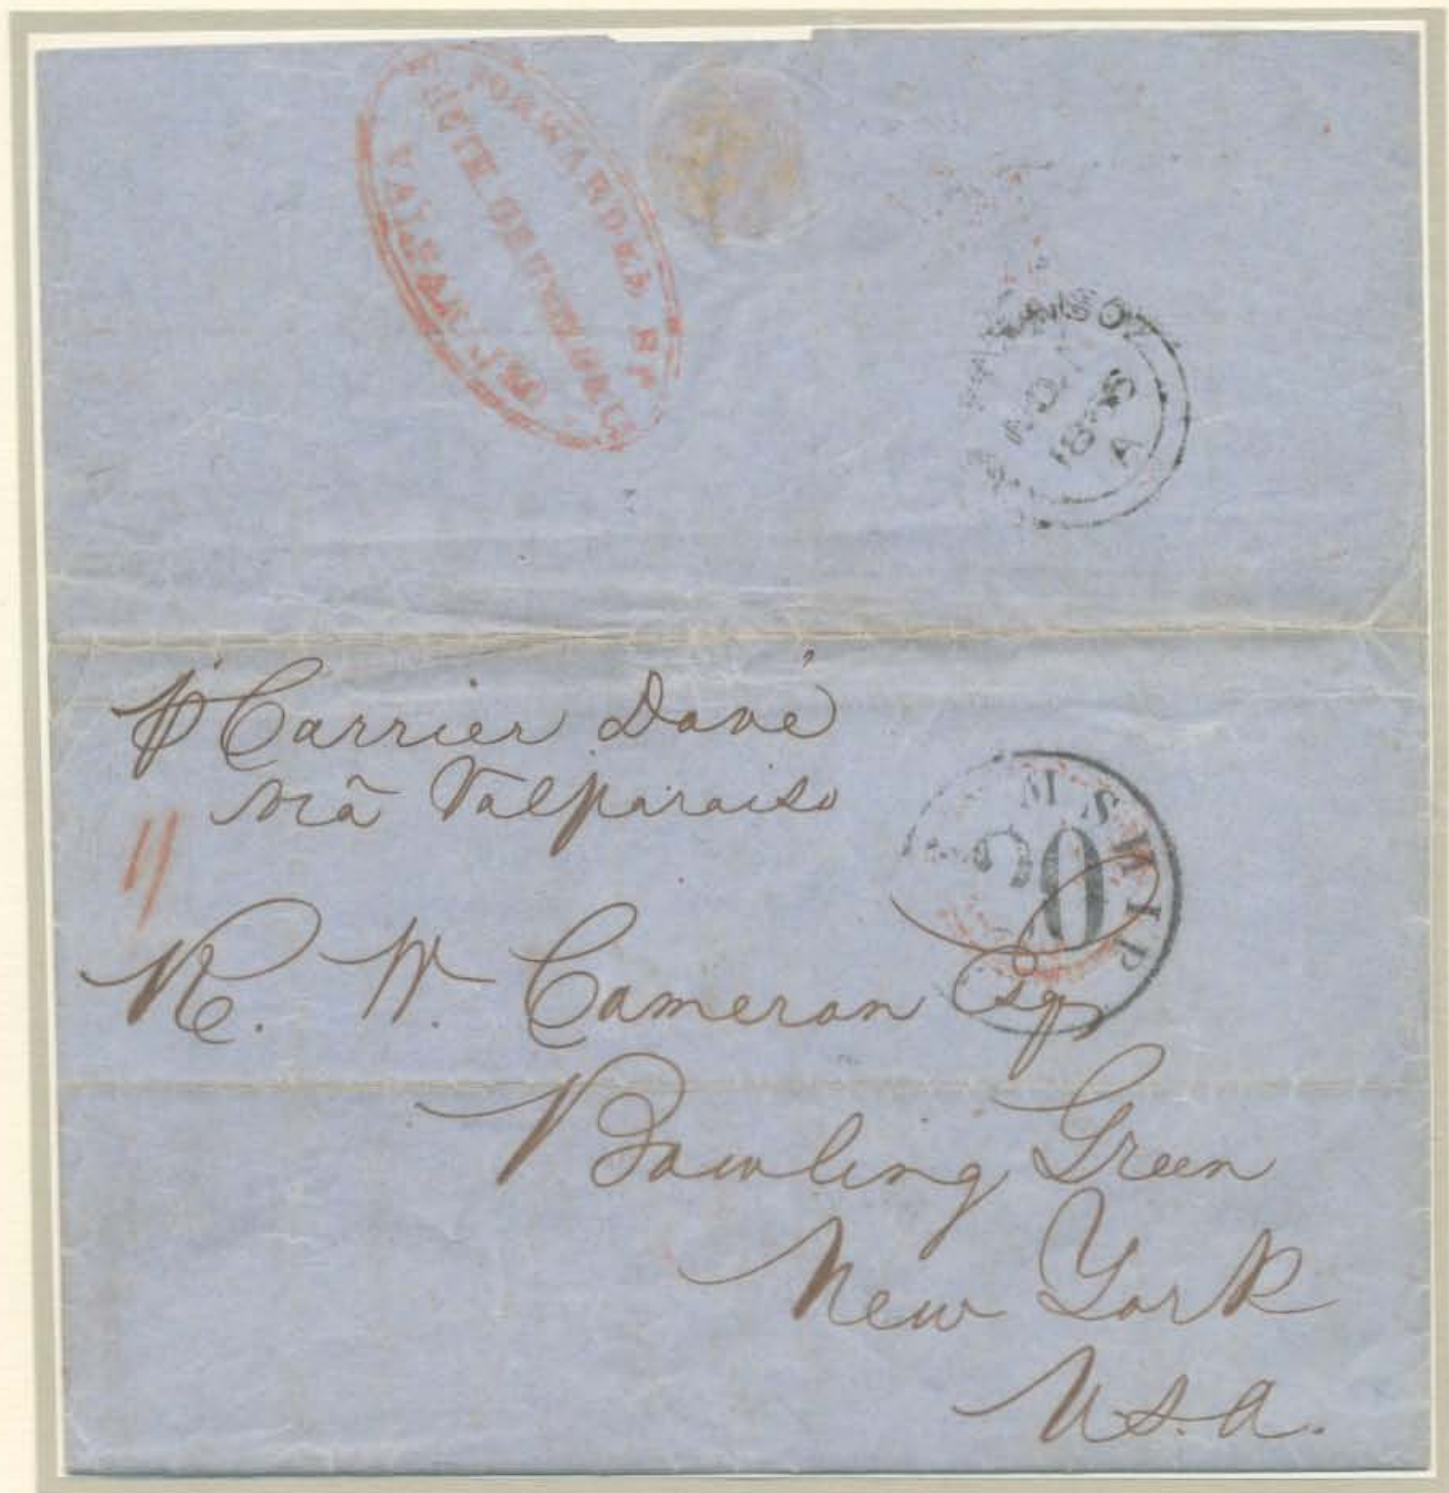 FORWARDED BY
VALPARAISO
VALPARAISO
NO
1855
A
p "Carrier Dove"
viã Valparaiso
STEAMSHIP
20
R. W. Cameron Esq
Bowling Green
New York
U.S.A.